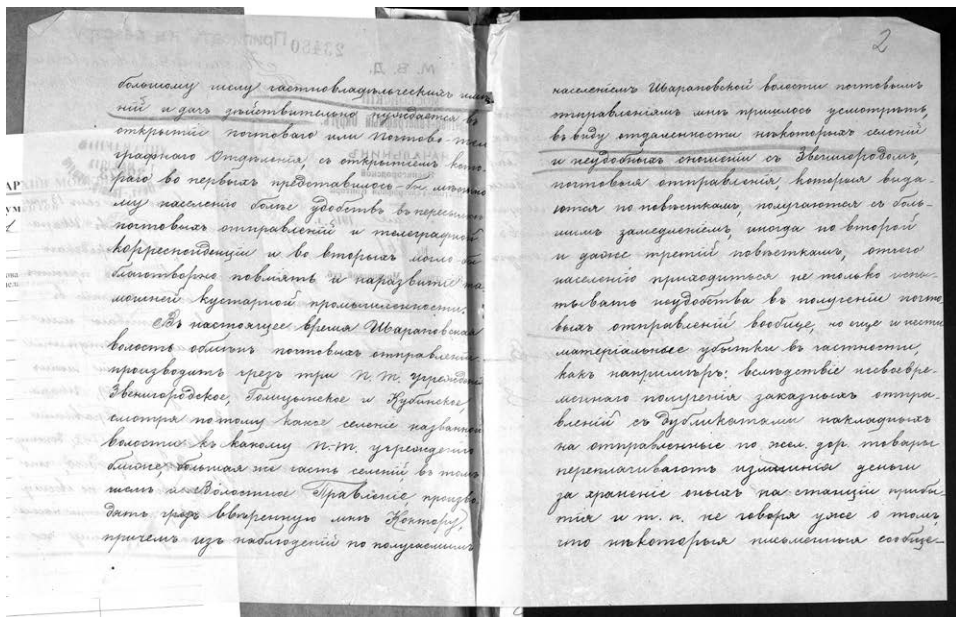 большому числу частновладѣльческихъ имѣ-
ній и дачъ дѣйствительно нуждается въ
открытіи почтоваго или почтово-теле
графнаго Отдѣленія, съ открытіемъ кото
раго во первыхъ представилось-бы мѣстно
му населенію болѣе удобствъ въ пересылкѣ
почтовыхъ отправленій и телеграфной
корреспонденціи и во вторыхъ могло бы
благотворно повліять и на развитіе та
мошней кустарной промышленности.
Въ настоящее время Шараповская
волость обмѣнъ почтовыхъ отправленій
производитъ чрезъ три п.т. учрежденія
Звенигородское, Голицынское и Кубинское,
смотря потому какое селеніе названной
волости къ какому п.т. учрежденію
ближе большая же часть селеній, въ томъ
числѣ и Волостное Правленіе произво
дятъ чрезъ ввѣренную мнѣ Контору,
причемъ изъ наблюденій по получаемымъ
2
населеніемъ Шараповской волости почтовымъ
отправленіямъ мнѣ пришлось усмотрѣть,
въ виду отдаленности нѣкоторыхъ селеній
и неудобныхъ сношеній съ Звенигородомъ,
почтовыя отправленія, которыя выда-
ются по повѣсткамъ, получаются съ боль-
шимъ замедленіемъ, иногда по второй
и даже третій повѣсткамъ, отчего
населенію приходиться не только испы-
тывать неудобства въ полученіи почто-
выхъ отправленій вообще, но еще и нести
матеріальные убытки въ частности,
какъ напримѣръ: вслѣдствіе несвоевре-
меннаго полученія заказныхъ отпра-
вленій съ дубликатами накладныхъ
на отправленные по жел. дор. товары
переплачиваютъ излишнія деньги
за храненіе оныхъ на станціи прибы-
тія и т. п. не говоря уже о томъ,
что нѣкоторыя письменныя сообще-
23480
М. В. Д.
НАЧАЛЬНИКЪ